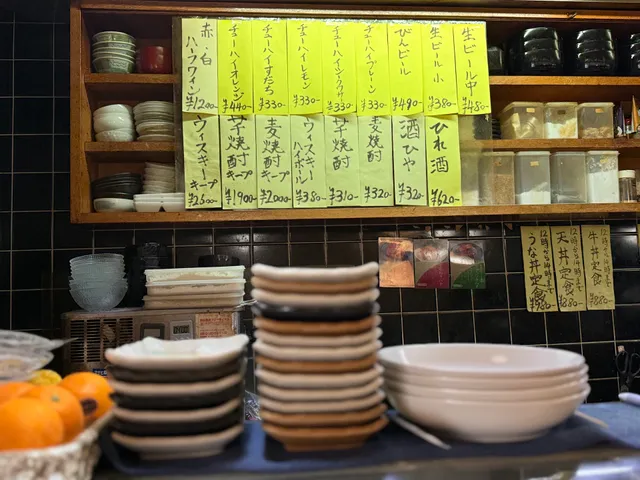 生ビール中
¥480-
生ビール小
¥380-
びんビール
¥490-
チューハイプレーン
¥330-
チューハイレモン
¥330-
チューハイすだち
¥330-
チューハイオレンジ
¥440-
赤・白
ハーフワイン
¥1200
ひれ酒
¥620-
酒ひや
¥320
麦焼酎
¥320
芋焼酎
¥310
ウィスキー
ハイボール
¥380
麦焼酎
キープ
¥2000
芋焼酎
キープ
¥1900
ウィスキー
キープ
¥2500
牛丼定食
¥880
天丼定食
¥880
うな丼定食